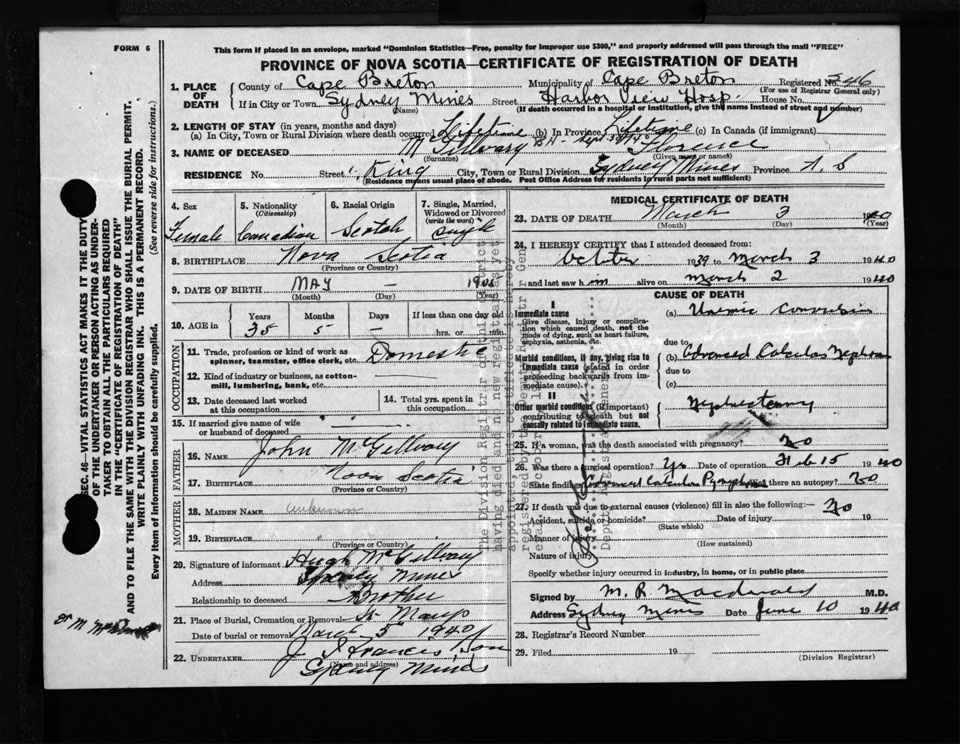 FORM 6
This form if placed in an envelope, marked "Dominion Statistics—Free, penalty for improper use $300," and properly addressed will pass through the mail "FREE"
PROVINCE OF NOVA SCOTIA—CERTIFICATE OF REGISTRATION OF DEATH
1. PLACE OF DEATH
County of Cape Breton Municipality of Cape Breton Registered No. 346
(For use of Registrar General only)
If in City or Town Sydney Mines Street Harbor View Hosp. House No.
(Name) (If death occurred in a hospital or institution, give the name instead of street and number)
2. LENGTH OF STAY (in years, months and days)
(a) In City, Town or Rural Division where death occurred Lifetime (b) In Province Lifetime (c) In Canada (if immigrant)
3. NAME OF DECEASED McGillvary Florence
(Surname) (Given name or names)
RESIDENCE No. Street King City, Town or Rural Division Sydney Mines Province N.S
(Residence means usual place of abode. Post Office Address for residents in rural parts not sufficient)
4. Sex Female
5. Nationality (Citizenship) Canadian
6. Racial Origin Scotch
7. Single, Married, Widowed or Divorced (write the word) Single
8. BIRTHPLACE Nova Scotia
(Province or Country)
9. DATE OF BIRTH MAY —
(Month) (Day) (Year)
10. AGE in Years Months Days If less than one day old
35 5 — hrs. or min.
OCCUPATION
11. Trade, profession or kind of work as spinner, teamster, office clerk, etc. Domestic
12. Kind of industry or business, as cotton-mill, lumbering, bank, etc.
13. Date deceased last worked at this occupation
14. Total yrs. spent in this occupation
15. If married give name of wife or husband of deceased
FATHER
16. NAME John McGillvary
17. BIRTHPLACE Nova Scotia
(Province or Country)
MOTHER
18. MAIDEN NAME Unknown
19. BIRTHPLACE
(Province or Country)
20. Signature of informant Hugh McGillvary
Address Sydney Mines
Relationship to deceased Brother
21. Place of Burial, Cremation or Removal St Marys
Date of burial or removal March 5 1940
22. UNDERTAKER J Francis Son
(Name and address)
Sydney Mines
MEDICAL CERTIFICATE OF DEATH
23. DATE OF DEATH March 3 1940
(Month) (Day) (Year)
24. I HEREBY CERTIFY that I attended deceased from:
October 1939 to March 3 1940
and last saw him alive on March 2 1940
CAUSE OF DEATH
I
Immediate cause
Give disease, injury or complication which caused death, not the mode of dying, such as heart failure, asphyxia, asthenia, etc.
(a) Uremic Convulsion
due to
Morbid conditions, if any, giving rise to immediate cause (stated in order proceeding backwards from immediate cause).
(b) Advanced Calculus
due to
(c)
II
Other morbid conditions (if important) contributing to death but not causally related to immediate cause.
Nephrectomy
25. If a woman, was the death associated with pregnancy? No
26. Was there a surgical operation? Yes Date of operation Feb 15 1940
State findings Advanced Calculus Was there an autopsy? No
27. If death was due to external causes (violence) fill in also the following:— No
Accident, suicide or homicide? Date of injury 19
(State which)
Manner of injury
(How sustained)
Nature of injury
Specify whether injury occurred in industry, in home, or in public place
Signed by M. R. Macdonald M.D.
Address Sydney Mines Date June 10 1940
28. Registrar's Record Number
29. Filed 19
(Division Registrar)
SEC. 46—VITAL STATISTICS ACT MAKES IT THE DUTY
OF THE UNDERTAKER OR PERSON ACTING AS UNDER-
TAKER TO OBTAIN ALL THE PARTICULARS REQUIRED
IN THE "CERTIFICATE OF REGISTRATION OF DEATH"
AND TO FILE THE SAME WITH THE DIVISION REGISTRAR WHO SHALL ISSUE THE BURIAL PERMIT.
WRITE PLAINLY WITH UNFADING INK. THIS IS A PERMANENT RECORD.
Every item of information should be carefully supplied. (See reverse side for instructions.)